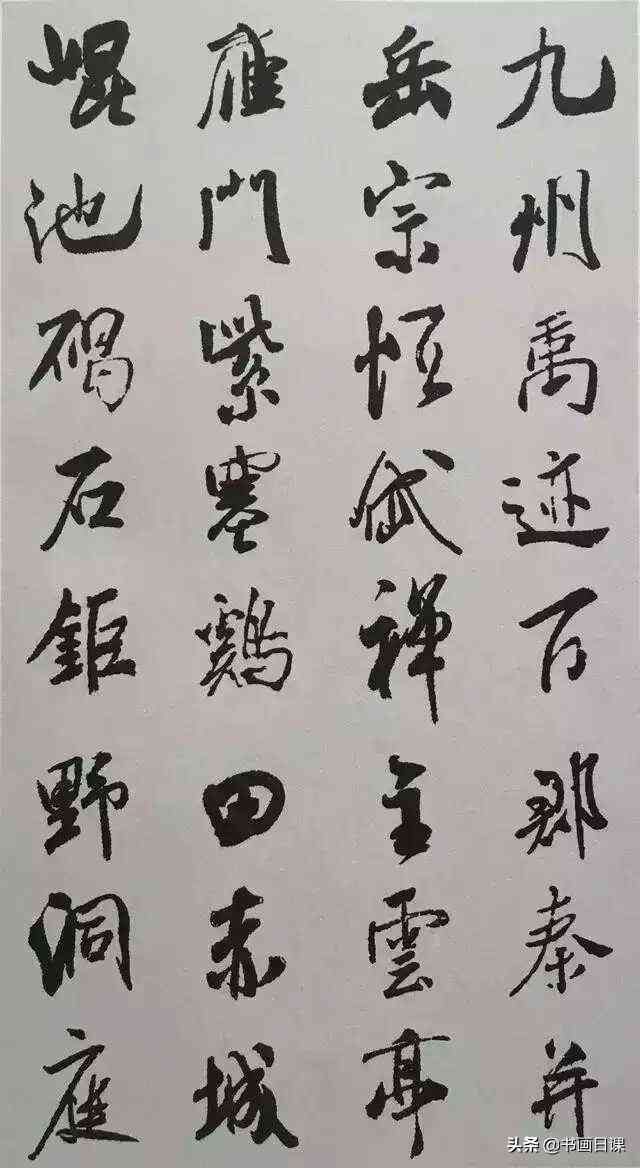 九州禹迹百郡秦并
岳宗恒岱禅主雲亭
雁門紫塞鷄田赤城
昆池碣石鉅野洞庭
头条 @书画日课